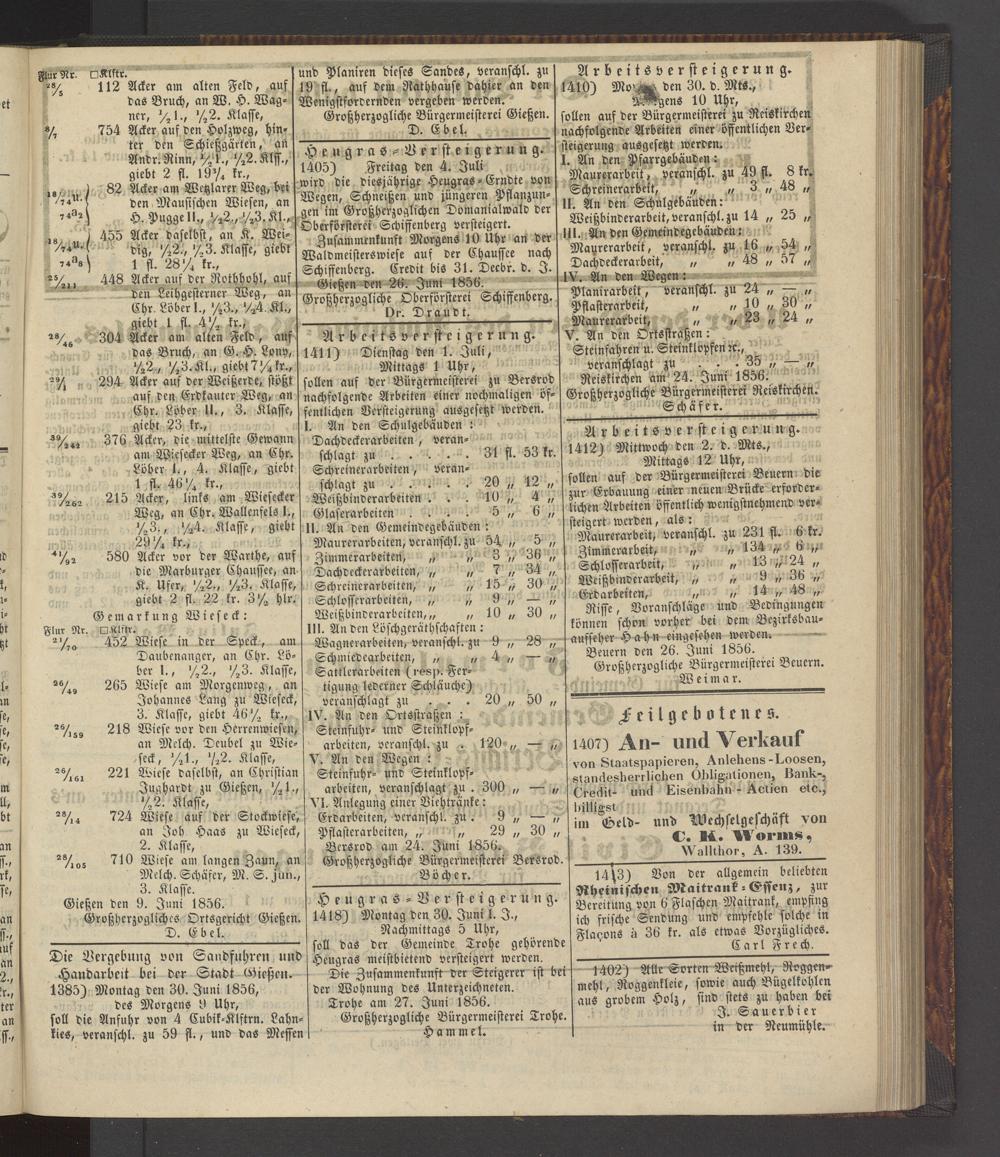 Flur Nr. □Klftr.
28/5 112 Acker am alten Feld, auf
das Bruch, an W. H. Wag-
ner, 1/2 1., 1/2 2. Klasse,
8/7 754 Acker auf den Holzweg, hin-
ter den Schießgärten, an
Andr. Rinn, 1/2 1., 1/2 2. Klss.,
giebt 2 fl. 19 3/4 kr.,
18/74 u. 74a2 82 Acker am Wetzlarer Weg, bei
den Mausischen Wiesen, an
H. Pugge II., 1/2 2., 1/2 3. Kl.,
18/74 u. 74a8 455 Acker daselbst, an K. Wei-
dig, 1/2 2., 1/2 3. Klasse, giebt
1 fl. 28 1/4 kr.,
25/211 448 Acker auf der Rothhohl, auf
den Leihgesterner Weg, an
Chr. Löber I., 1/2 3., 1/2 4. Kl.,
giebt 1 fl. 4 1/2 kr.,
28/46 304 Acker am alten Feld, auf
das Bruch, an G. H. Lony,
1/2 2., 1/2 3. Kl., giebt 7 1/4 kr.,
29/1 294 Acker auf der Weißerde, stößt
auf den Erdkauter Weg, an
Chr. Löber II., 3. Klasse,
giebt 23 kr.,
39/242 376 Acker, die mittelste Gewann
am Wiesecker Weg, an Chr.
Löber I., 4. Klasse, giebt
1 fl. 46 1/4 kr.,
39/262 215 Acker, links am Wiesecker
Weg, an Chr. Wallenfels I.,
1/2 3., 1/2 4. Klasse, giebt
29 1/4 kr.,
41/92 580 Acker vor der Warthe, auf
die Marburger Chaussee, an
K. Ufer, 1/2 2., 1/2 3. Klasse,
giebt 2 fl. 22 kr. 3 1/2 hlr.
Gemarkung Wieseck:
Flur Nr. □Klftr.
21/70 452 Wiese in der Speck, am
Daubenanger, an Chr. Lö-
ber I., 1/2 2., 1/2 3. Klasse,
26/49 265 Wiese am Morgenweg, an
Johannes Lang zu Wieseck,
3. Klasse, giebt 46 1/2 kr.,
26/159 218 Wiese vor den Herrenwiesen,
an Melch. Deubel zu Wie-
seck, 1/2 1., 1/2 2. Klasse,
26/161 221 Wiese daselbst, an Christian
Jughardt zu Gießen, 1/2 1.,
1/2 2. Klasse,
28/14 724 Wiese auf der Stockwiese,
an Joh Haas zu Wieseck,
2. Klasse,
28/105 710 Wiese am langen Zaun, an
Melch. Schäfer, M. S. jun.,
3. Klasse.
Gießen den 9. Juni 1856.
Großherzogliches Ortsgericht Gießen.
D. Ebel.
Die Vergebung von Sandfuhren und
Handarbeit bei der Stadt Gießen.
1385) Montag den 30. Juni 1856,
des Morgens 9 Uhr,
soll die Anfuhr von 4 Cubik-Klftrn. Lahn-
kies, veranschl. zu 59 fl., und das Messen
und Planiren dieses Sandes, veranschl. zu
19 fl., auf dem Rathhause dahier an den
Wenigstfordernden vergeben werden.
Großherzogliche Bürgermeisterei Gießen.
D. Ebel.
Heugras-Versteigerung.
1405) Freitag den 4. Juli
wird die diesjährige Heugras-Erndte von
Wegen, Schneißen und jüngeren Pflanzun-
gen im Großherzoglichen Domanialwald der
Oberförsterei Schiffenberg versteigert.
Zusammenkunft Morgens 10 Uhr an der
Waldmeisterswiese auf der Chaussee nach
Schiffenberg. Credit bis 31. Decbr. d. J.
Gießen den 26. Juni 1856.
Großherzogliche Oberförsterei Schiffenberg.
Dr. Draudt.
Arbeitsversteigerung.
1411) Dienstag den 1. Juli,
Mittags 1 Uhr,
sollen auf der Bürgermeisterei zu Bersrod
nachfolgende Arbeiten einer nochmaligen öf-
fentlichen Versteigerung ausgesetzt werden.
I. An den Schulgebäuden:
Dachdeckerarbeiten, veran-
schlagt zu . . . . . 31 fl. 53 kr.
Schreinerarbeiten, veran-
schlagt zu . . . . . 20 „ 12 „
Weißbinderarbeiten . . . 10 „ 4 „
Glaserarbeiten . . . . 5 „ 6 „
II. An den Gemeindegebäuden:
Maurerarbeiten, veranschl. zu 54 „ 5 „
Zimmerarbeiten, „ „ 3 „ 36 „
Dachdeckerarbeiten, „ „ 7 „ 34 „
Schreinerarbeiten, „ „ 15 „ 30 „
Schlosserarbeiten, „ „ 9 „ — „
Weißbinderarbeiten, „ „ 10 „ 30 „
III. An den Löschgeräthschaften:
Wagnerarbeiten, veranschl. zu 9 „ 28 „
Schmiedearbeiten, „ „ 4 „ — „
Sattlerarbeiten (resp. Fer-
tigung lederner Schläuche)
veranschlagt zu . . . 20 „ 50 „
IV. An den Ortsstraßen:
Steinfuhr- und Steinklopf-
arbeiten, veranschl. zu . 120 „ — „
V. An den Wegen:
Steinfuhr- und Steinklopf-
arbeiten, veranschlagt zu . 300 „ — „
VI. Anlegung einer Viehtränke:
Erdarbeiten, veranschl. zu . 9 „ — „
Pflasterarbeiten, „ „ 29 „ 30 „
Bersrod am 24. Juni 1856.
Großherzogliche Bürgermeisterei Bersrod.
Böcher.
Heugras-Versteigerung.
1418) Montag den 30. Juni l. J.,
Nachmittags 5 Uhr,
soll das der Gemeinde Trohe gehörende
Heugras meistbietend versteigert werden.
Die Zusammenkunft der Steigerer ist bei
der Wohnung des Unterzeichneten.
Trohe am 27. Juni 1856.
Großherzogliche Bürgermeisterei Trohe.
Hammel.
Arbeitsversteigerung.
1410) den 30. d. Mts.,
10 Uhr,
sollen auf der Bürgermeisterei zu Reiskirchen
nachfolgende Arbeiten einer öffentlichen Ver-
steigerung ausgesetzt werden.
I. An den Pfarrgebäuden:
Maurerarbeit, veranschl. zu 49 fl. 8 kr.
Schreinerarbeit, „ „ 3 „ 48 „
II. An den Schulgebäuden:
Weißbinderarbeit, veranschl. zu 14 „ 25 „
III. An den Gemeindegebäuden:
Maurerarbeit, veranschl. zu 16 „ 54 „
Dachdeckerarbeit, „ „ 48 „ 57 „
IV. An den Wegen:
Planirarbeit, veranschl. zu 24 „ — „
Pflasterarbeit, „ „ 10 „ 30 „
Maurerarbeit, „ „ 23 „ 24 „
V. An den Ortsstraßen:
Steinfahren u. Steinklopfen ꝛc.,
veranschlagt zu . . . . 35 „ — „
Reiskirchen am 24. Juni 1856.
Großherzogliche Bürgermeisterei Reiskirchen.
Schäfer.
Arbeitsversteigerung.
1412) Mittwoch den 2. d. Mts.,
Mittags 12 Uhr,
sollen auf der Bürgermeisterei Beuern die
zur Erbauung einer neuen Brücke erforder-
lichen Arbeiten öffentlich wenigstnehmend ver-
steigert werden, als:
Maurerarbeit, veranschl. zu 231 fl. 6 kr.
Zimmerarbeit, „ „ 134 „ 6 „
Schlosserarbeit, „ „ 13 „ 24 „
Weißbinderarbeit, „ „ 9 „ 36 „
Erdarbeiten, „ „ 14 „ 48 „
Risse, Voranschläge und Bedingungen
können schon vorher bei dem Bezirksbau-
aufseher Hahn eingesehen werden.
Beuern den 26. Juni 1856.
Großherzogliche Bürgermeisterei Beuern.
Weimar.
Feilgebotenes.
1407) An- und Verkauf
von Staatspapieren, Anlehens-Loosen,
standesherrlichen Obligationen, Bank-,
Credit- und Eisenbahn-Actien etc.,
billigst
im Geld- und Wechselgeschäft von
C. K. Worms,
Wallthor, A. 139.
1413) Von der allgemein beliebten
Rheinischen Maitrank-Essenz, zur
Bereitung von 6 Flaschen Maitrank, empfing
ich frische Sendung und empfehle solche in
Flaçons à 36 kr. als etwas Vorzügliches.
Carl Frech.
1402) Alle Sorten Weißmehl, Roggen-
mehl, Roggenkleie, sowie auch Bügelkohlen
aus grobem Holz, sind stets zu haben bei
J. Sauerbier
in der Neumühle.